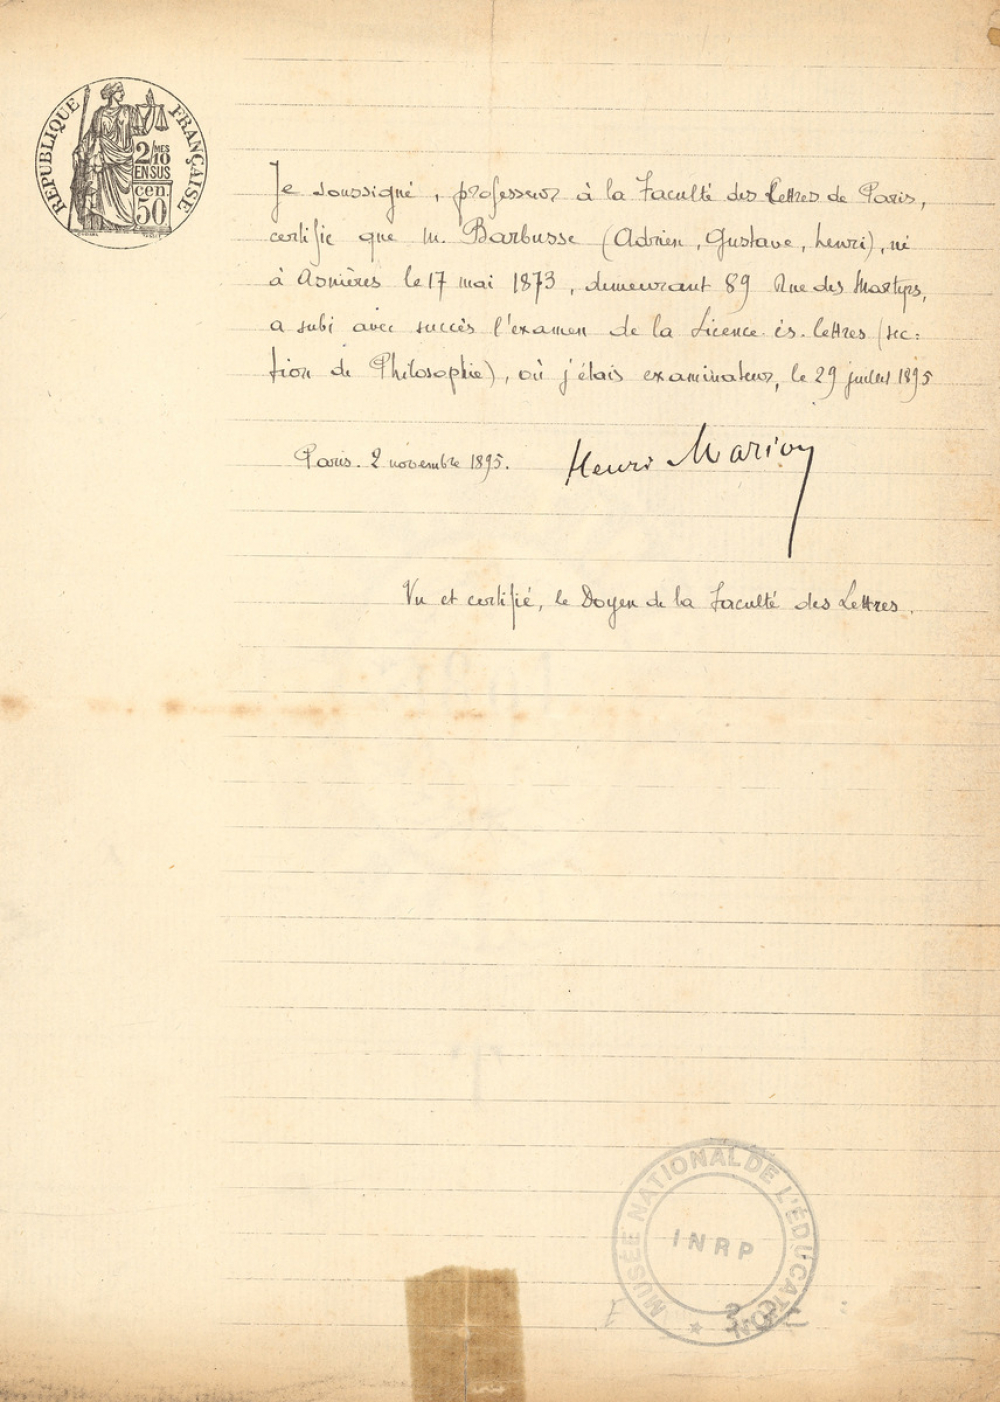 RÉPUBLIQUE FRANÇAISE
2/MES 10
EN SUS
cen.
50
Je soussigné, professeur à la Faculté des Lettres de Paris,
certifie que M. Barbusse (Adrien, Gustave, henri), né
à Asnières le 17 mai 1873, demeurant 89 Rue des Martyrs,
a subi avec succès l'examen de la Licence ès. lettres (sec:
tion de Philosophie), où j'étais examinateur, le 29 juillet 1895
Paris. 2 novembre 1895. Henri Marion
Vu et certifié, le Doyen de la Faculté des Lettres.
MUSÉE NATIONAL DE L'ÉDUCATION
INRP